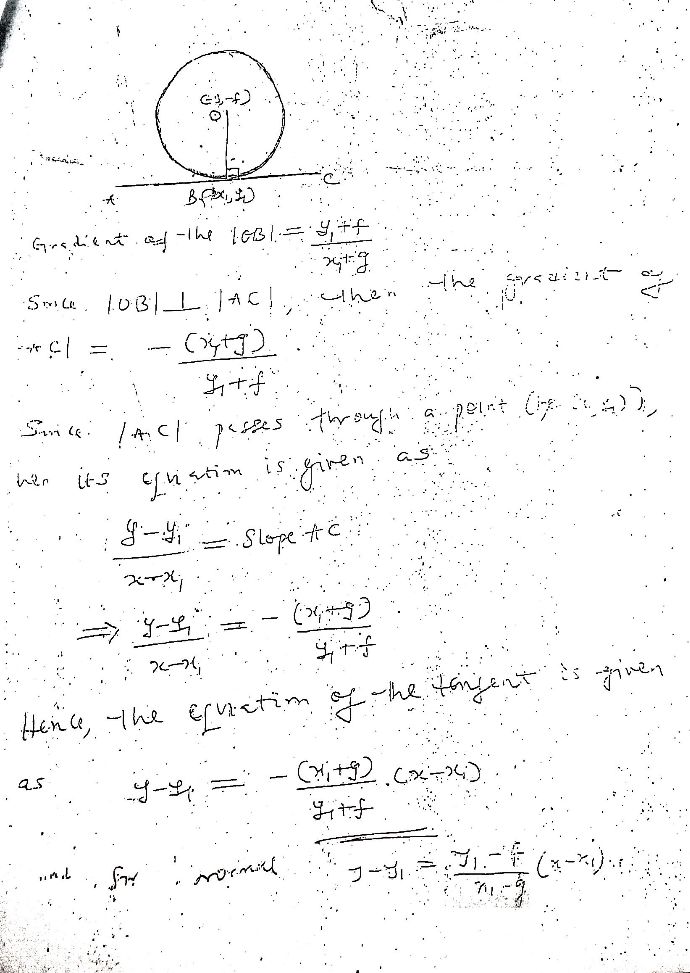 (-g,-f)
O
A
B(x₁, y₁)
C
Gradient of the |OB| = (y₁+f)/(x₁+g)
Since |OB| ⊥ |AC|, then the gradient of
AC| = -(x₁+g)/(y₁+f)
Since |AC| passes through a point
its equation is given as
(y-y₁)/(x-x₁) = Slope AC
⇒ (y-y₁)/(x-x₁) = -(x₁+g)/(y₁+f)
Hence, the equation of the tangent is given
as y-y₁ = -(x₁+g)/(y₁+f) .(x-x₁)
and for normal y-y₁ = (y₁-f)/(x₁-g) (x-x₁)